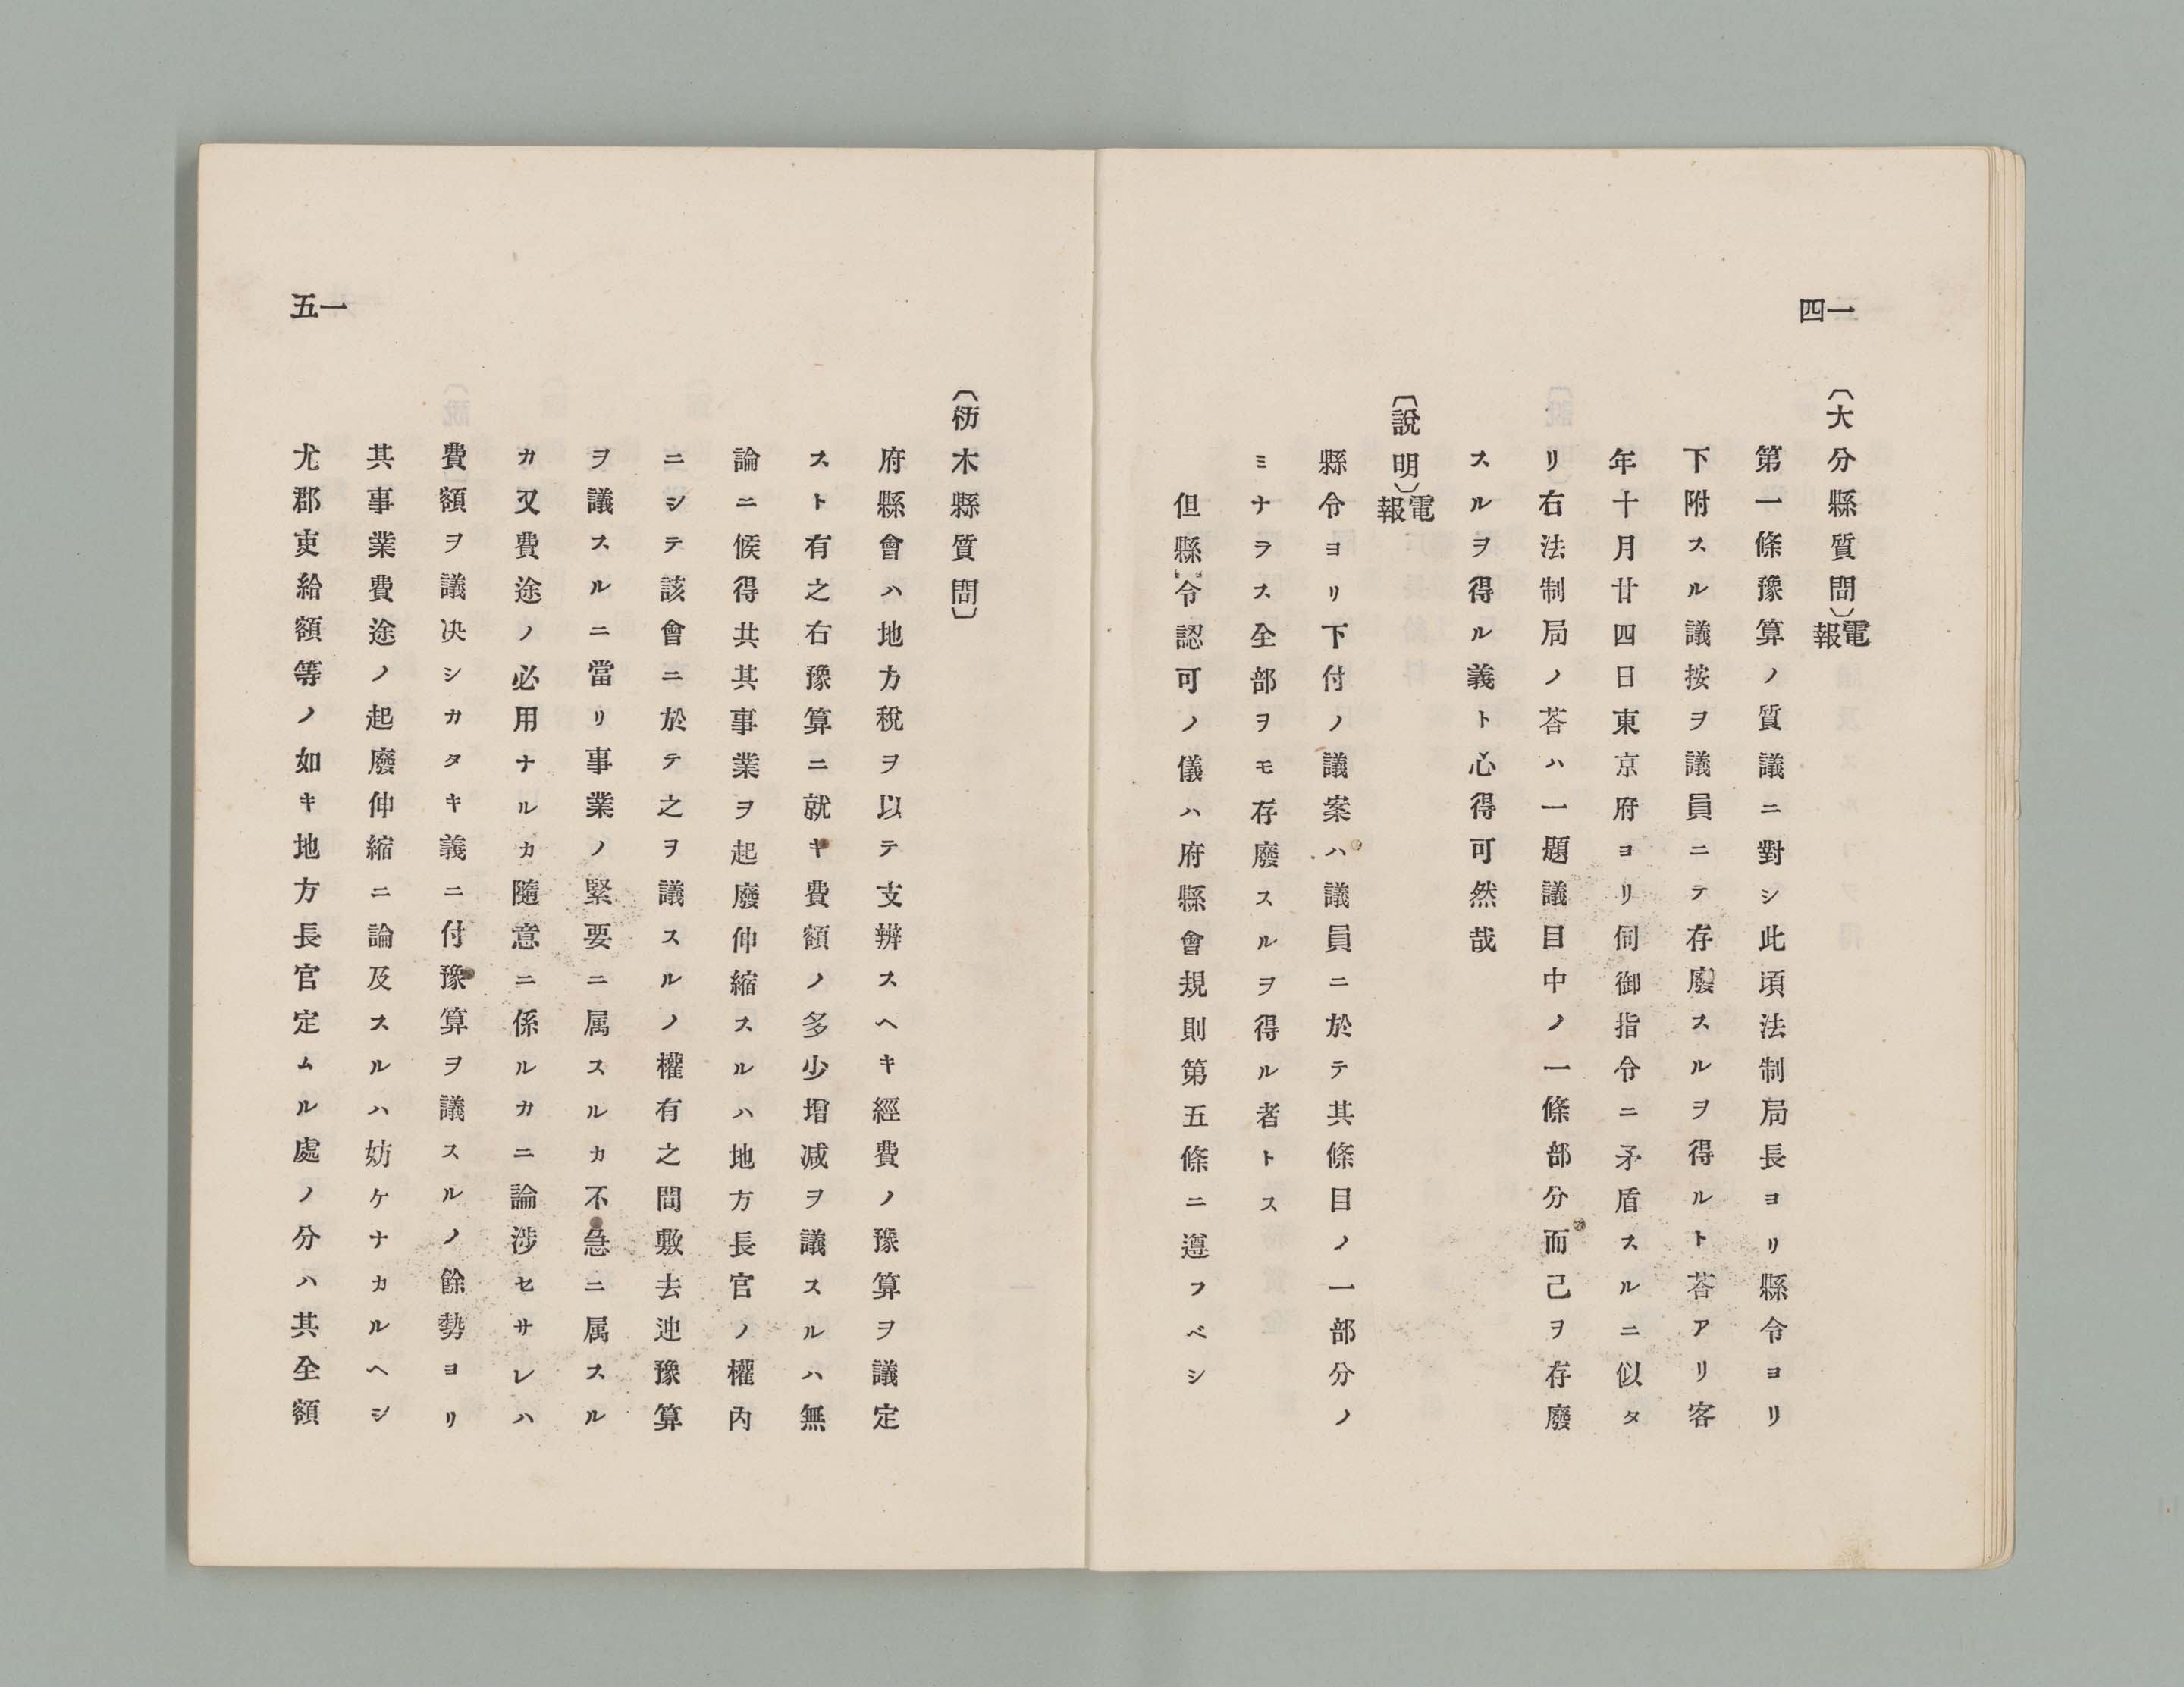 一四
〔大分縣質問〕電報
第一條豫算ノ質議ニ對シ此頃法制局長ヨリ縣令ヨリ
下附スル議按ヲ議員ニテ存廢スルヲ得ルト荅アリ客
年十月廿四日東京府ヨリ伺御指令ニ矛盾スルニ似タ
リ右法制局ノ荅ハ一題議目中ノ一條部分而己ヲ存廢
スルヲ得ル義ト心得可然哉
〔說明〕電報
縣令ヨリ下付ノ議案ハ議員ニ於テ其條目ノ一部分ノ
ミナラス全部ヲモ存廢スルヲ得ル者トス
但縣令認可ノ儀ハ府縣會規則第五條ニ遵フベシ
一五
〔栃木縣質問〕
府縣會ハ地方稅ヲ以テ支辨スヘキ經費ノ豫算ヲ議定
スト有之右豫算ニ就キ費額ノ多少增减ヲ議スルハ無
論ニ候得共其事業ヲ起廢伸縮スルハ地方長官ノ權內
ニシテ該會ニ於テ之ヲ議スルノ權有之間敷去迚豫算
ヲ議スルニ當リ事業ノ緊要ニ属スルカ不急ニ属スル
カ又費途ノ必用ナルカ隨意ニ係ルカニ論涉セサレハ
費額ヲ議决シカタキ義ニ付豫算ヲ議スルノ餘勢ヨリ
其事業費途ノ起廢伸縮ニ論及スルハ妨ケナカルヘシ
尤郡吏給額等ノ如キ地方長官定ムル處ノ分ハ其全額